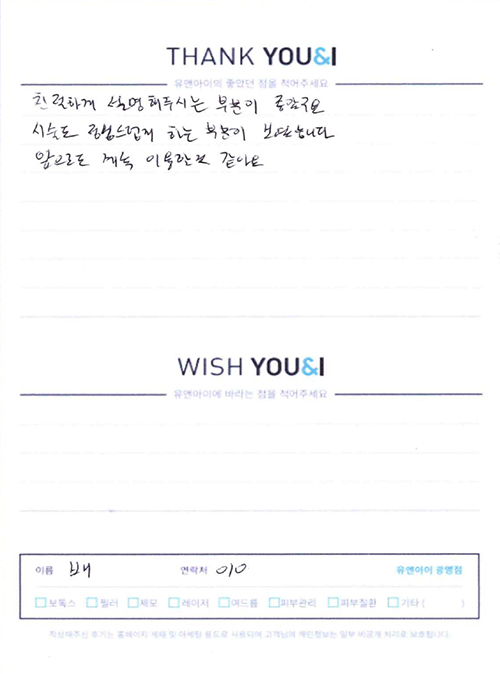 THANK YOU&I
유앤아이의 좋았던 점을 적어주세요
친절하게 설명해주시는 부분이 좋았구요
시술도 꼼꼼스럽게 하는 부분이 보였습니다
앞으로도 계속 이용할것 같아요
WISH YOU&I
유앤아이에 바라는 점을 적어주세요
이름 배 연락처 010 유앤아이 광명점
보톡스 필러 제모 레이저 여드름 피부관리 피부질환 기타 ( )
작성해주신 후기는 홈페이지 게재 및 마케팅 용도로 사용되며 고객님의 개인정보는 일부 비공개 처리로 보호됩니다.